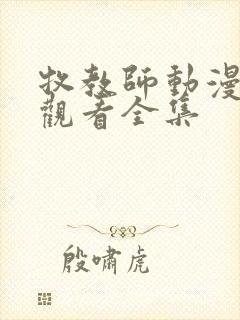 牧教師動漫
觀看全集
殷嘯虎